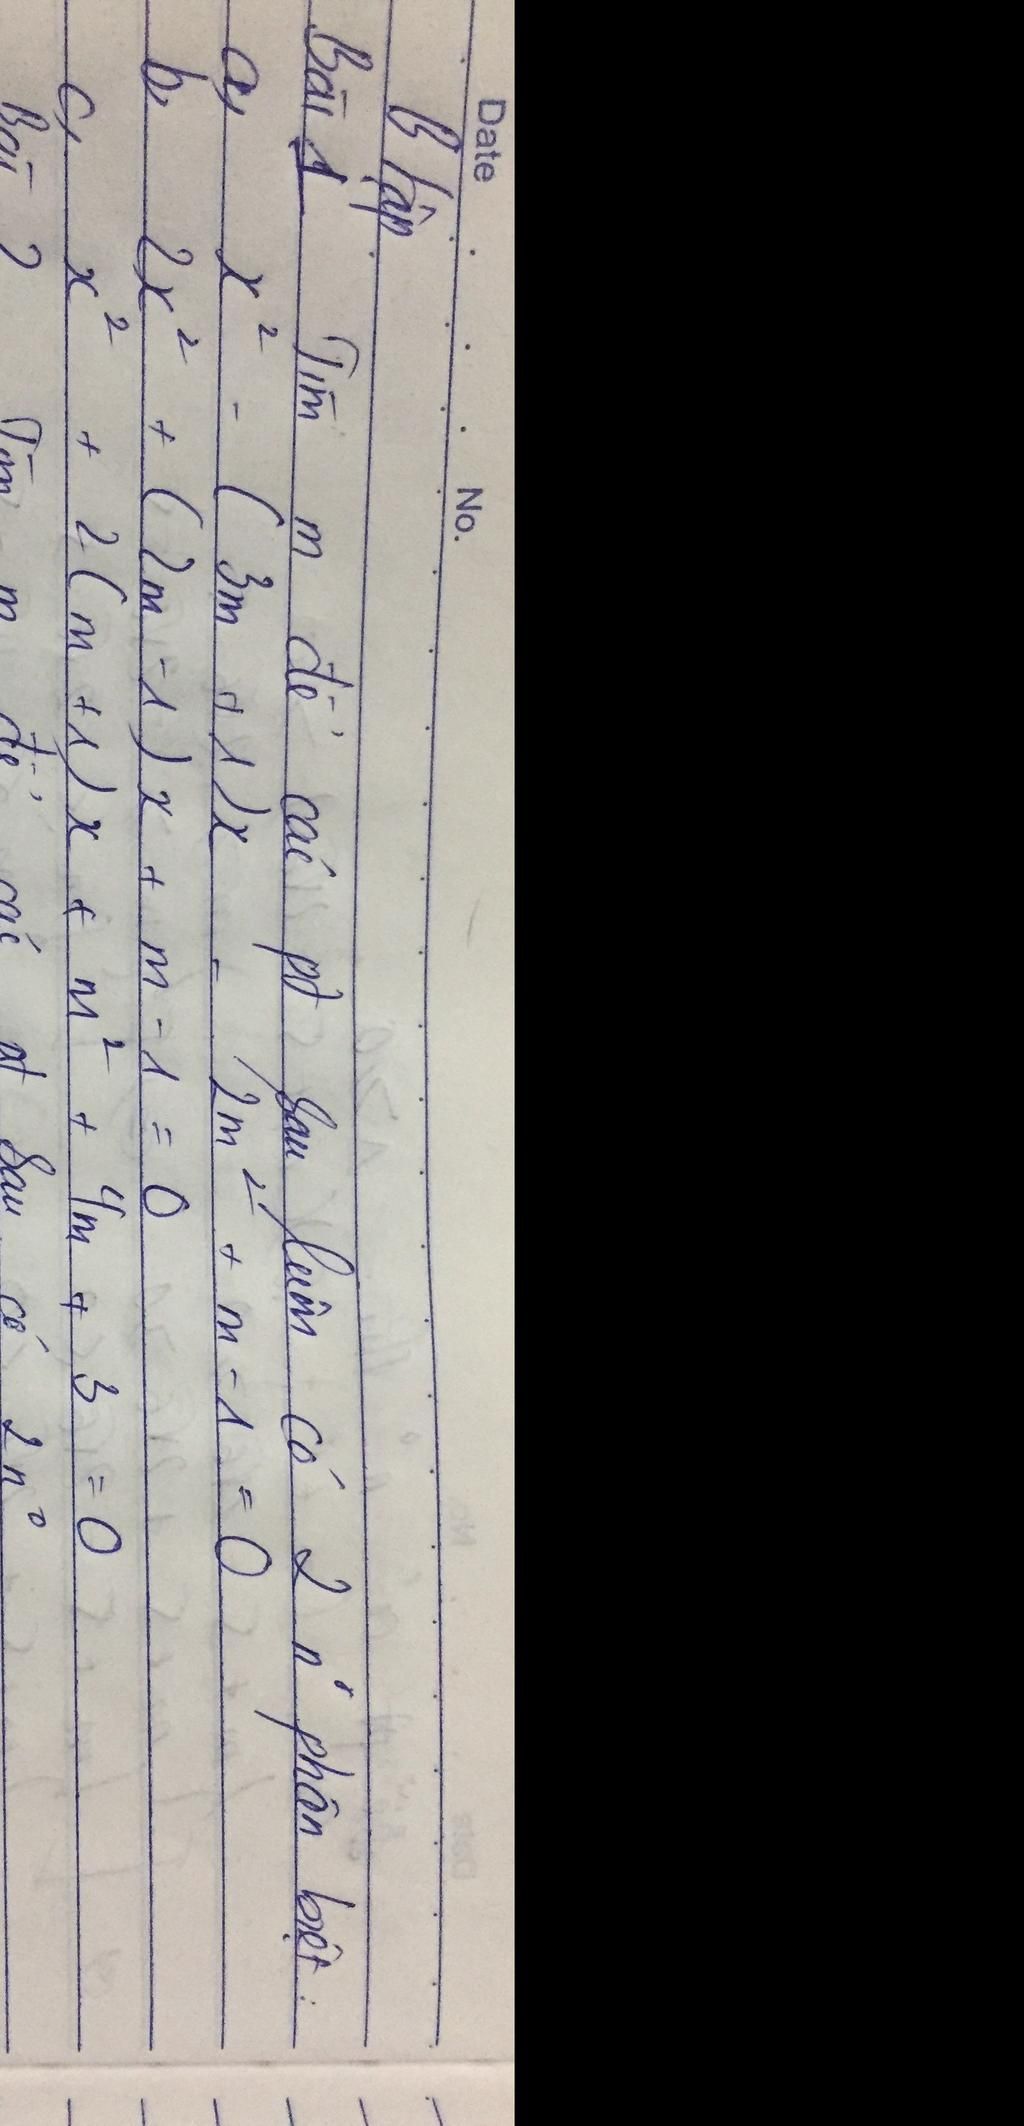 Date No.
B tập
Bài 1 Tìm m để các pt sau luôn có 2 n° phân biệt:
a, x² - (3m + 1)x - 2m² + m - 1 = 0
b, 2x² + (2m - 1)x + m - 1 = 0
c, x² + 2(m + 1)x + m² + 4m + 3 = 0
Bài 2 Tìm m để các pt sau có 2n°